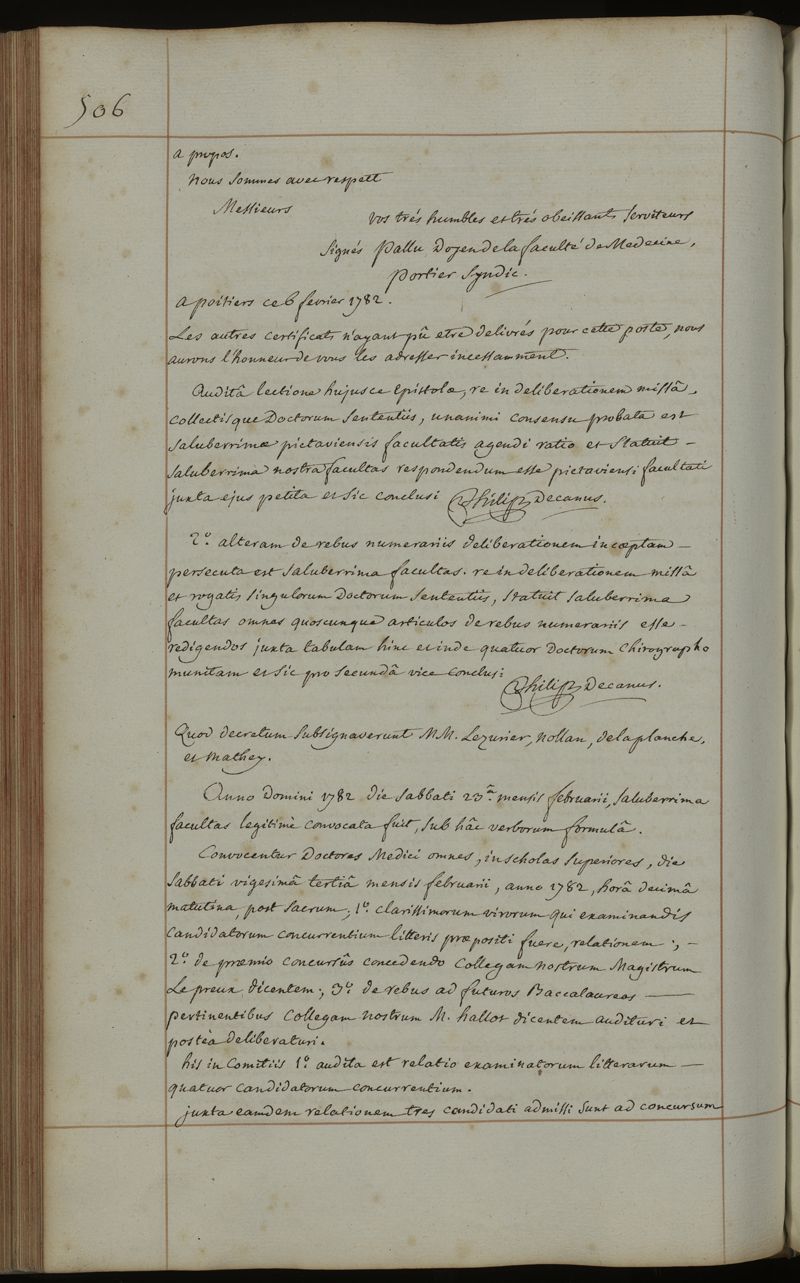 506
a propos.
Nous sommes avec respect
Messieurs
vos trés humbles et trés obeissants serviteurs
signés Pallu Doyen de la faculté de Medecine,
Portier Syndic.
A poitiers ce 6 fevrier 1782.
Les autres certificats n'ayant pû etre delivrés pour cette poste, nous
aurons l'honneur de vous les adresser incessamment.
Auditâ lectione hujusce Epistolæ, re in deliberationem missâ,
collectisque Doctorum Sententiis, unanimi consensu probata est
saluberrimæ pictaviensis facultatis agendi ratio et Statuit –
saluberrima nostra facultas respondendum esse pictaviensi facultati
juxta ejus petita et sic conclusi Philip Decanus.
2.° alteram de rebus numerariis deliberationem inceptam –
persecuta est saluberrima facultas. re in deliberationem missâ
et rogatis singulorum Doctorum Sententiis, Statuit saluberrima
facultas omnes quoscunque articulos de rebus numerariis esse –
redigendos juxta tabulam hinc et inde quatuor Doctorum Chirographo
munitam et sic pro secundâ vice conclusi
Philip Decanus.
Quod decretum subsignaverunt MM. Lezurier, Nollan, delaplanche,
et Mathey.
Anno Domini 1782 die Sabbati 23.ª mensis februarii, saluberrima
facultas legitimè convocata fuit, sub hâc verborum formulâ.
Convocentur Doctores Medici omnes, in scholas superiores, die
Sabbati vigesimâ tertiâ mensis februarii, anno 1782, horâ decimâ
matutina, post sacrum; 1.° clarissimorum virorum qui examinandis
candidatorum concurrentium litteris præpositi fuere, relationem; –
2.° de præmio concursûs concedendo collegam nostrum Magistrum
Le preux dicentem; 3.° de rebus ad futuros Baccalaureos —
pertinentibus collegam nostrum M. hallot dicentem audituri et
posteà deliberaturi.
his in Comitiis 1.° audita est relatio examinatorum litterarum —
quatuor candidatorum concurrentium.
juxta eamdem relationem tres candidati admissi sunt ad concursum